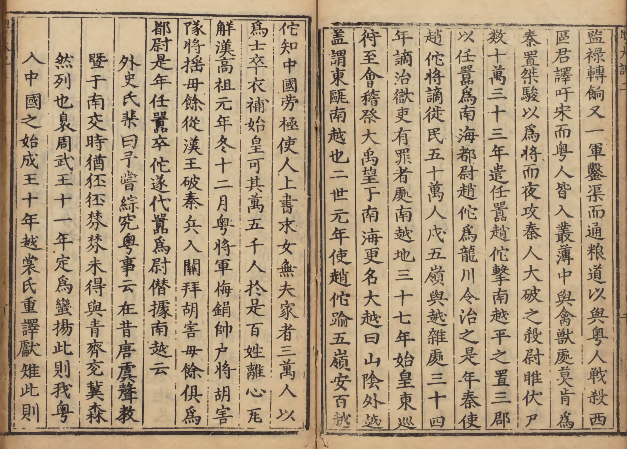 監祿轉餉又一軍鑿渠而通粮道以與粤人戰殺西
區君譯吁宋而粤人皆入叢薄中與禽獸處莫肯爲
秦置桀駿以爲將而夜攻秦人大破之殺尉睢伏尸
數十萬三十三年遣任囂趙佗擊南越平之置三郡
以任囂爲南海都尉趙佗爲龍川令治之是年秦使
趙佗將謫徙民五十萬人戍五嶺與越雜處三十四
年謫治獄吏有罪者處南越地三十七年始皇東巡
行至會稽祭大禹望于南海更名大越曰山陰外越
盖謂東甌南越也二世元年使趙佗踰五嶺安百
佗知中國勞極使人上書求女無夫家者三萬人以
爲士卒衣補始皇可其萬五千人於是百姓離心瓦
解漢高祖元年冬十二月粤將軍梅鋗帥戶將胡害
隊將摇毋餘從漢王破秦兵入關拜胡害毋餘俱爲
都尉是年任囂卒佗遂代囂爲尉僭據南越云
外史氏棐曰予嘗綜究粤事云在昔唐虞聲教
暨于南交時猶狉狉獉獉未得與青齊兖冀森
然列也裒周武王十一年定爲蠻揚此則我粤
入中國之始成王十年越裳氏重譯獻雉此則